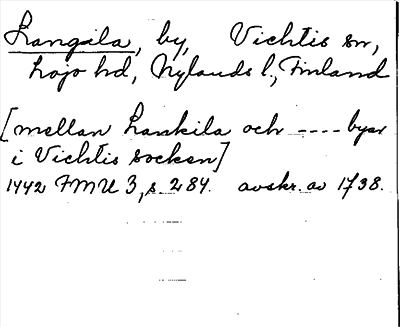 Langila, by, Vichtis sn,
Lojo hd, Nylands l., Finland
[mellan Lankila och ---- byar
i Vichtis socken]
1442 FMU 3, s. 284. avskr. av 1738.